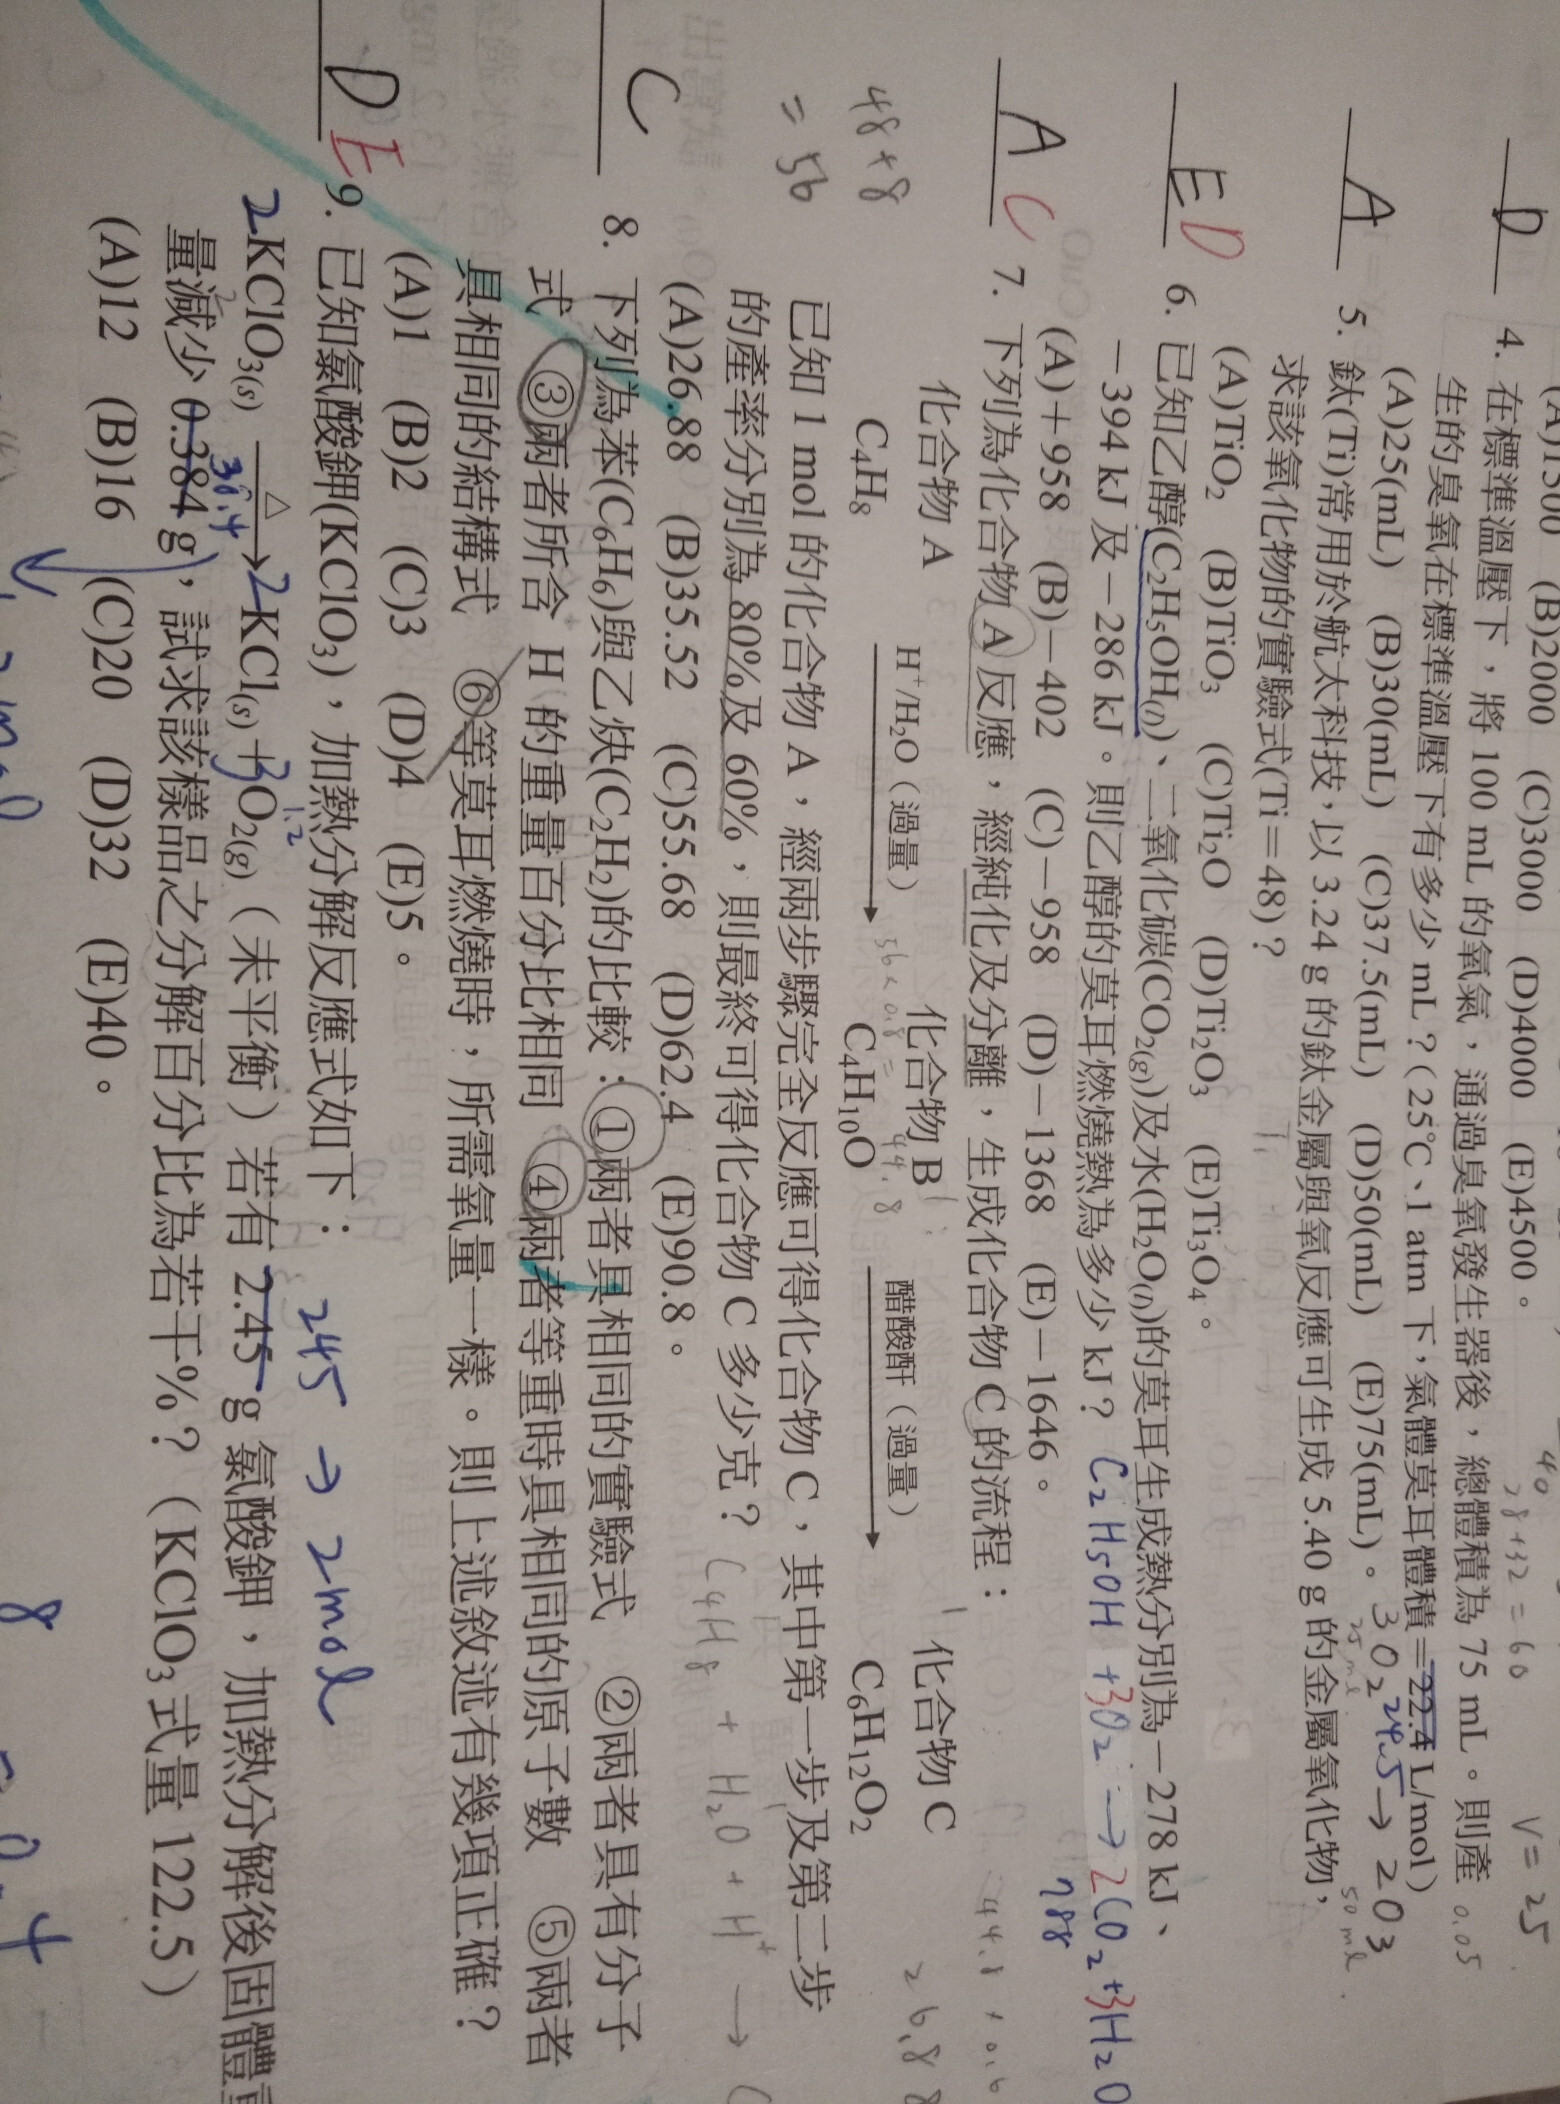 (A)1500 (B)2000 (C)3000 (D)4000 (E)4500。
40
28+32=60
V=25
D 4. 在標準溫壓下，將 100 mL 的氧氣，通過臭氧發生器後，總體積為 75 mL。則產
0.05
生的臭氧在標準溫壓下有多少 mL？(25℃、1 atm 下，氣體莫耳體積=22.4 L/mol)
24.5
(A)25(mL) (B)30(mL) (C)37.5(mL) (D)50(mL) (E)75(mL)。 3O2 → 2O3
25ml 50ml
A 5. 鈦(Ti)常用於航太科技，以 3.24 g 的鈦金屬與氧反應可生成 5.40 g 的金屬氧化物，
求該氧化物的實驗式(Ti=48)？
(A)TiO2 (B)TiO3 (C)Ti2O (D)Ti2O3 (E)Ti3O4。
E D 6. 已知乙醇(C2H5OH(l))、二氧化碳(CO2(g))及水(H2O(l))的莫耳生成熱分別為－278 kJ、
－394 kJ 及－286 kJ。則乙醇的莫耳燃燒熱為多少 kJ？ C2H5OH +3O2 → 2CO2+3H2O
788
(A)＋958 (B)－402 (C)－958 (D)－1368 (E)－1646。
A C 7. 下列為化合物 A 反應，經純化及分離，生成化合物 C 的流程：
44.8 × 0.6
化合物 A 化合物 B 化合物 C
H+/H2O（過量） 醋酸酐（過量）
56×0.8=44.8
26.88
C4H8 → C4H10O → C6H12O2
48+8
=56
已知 1 mol 的化合物 A，經兩步驟完全反應可得化合物 C，其中第一步及第二步
的產率分別為 80%及 60%，則最終可得化合物 C 多少克？ C4H8 + H2O + H+ →
(A)26.88 (B)35.52 (C)55.68 (D)62.4 (E)90.8。
C 8. 下列為苯(C6H6)與乙炔(C2H2)的比較：①兩者具相同的實驗式 ②兩者具有分子
式 ③兩者所含 H 的重量百分比相同 ④兩者等重時具相同的原子數 ⑤兩者
具相同的結構式 ⑥等莫耳燃燒時，所需氧量一樣。則上述敘述有幾項正確？
(A)1 (B)2 (C)3 (D)4 (E)5。
D E 9. 已知氯酸鉀(KClO3)，加熱分解反應式如下： 245 → 2mol
1.2
2KClO3(s) △→ 2KCl(s)＋3O2(g)（未平衡）若有 2.45 g 氯酸鉀，加熱分解後固體重
38.4
量減少 0.384 g，試求該樣品之分解百分比為若干%？（KClO3 式量 122.5）
(A)12 (B)16 (C)20 (D)32 (E)40。